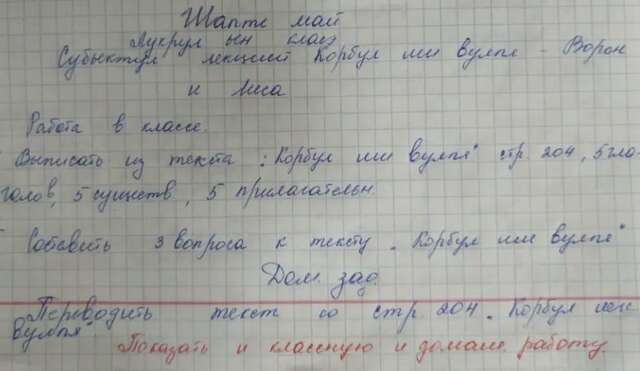 Шапте май
Лукрул ын класэ
Субьектул лекцией Корбул ши вулпя - Ворон
и лиса
Работа в классе.
Выписать из текста „Корбул ши вулпя" стр. 204, 5 гла-
голов, 5 существ, 5 прилагательн
Составить 3 вопроса к тексту „Корбул ши вулпя"
Дом. зад.
Переводить текст со стр 204 „Корбул ши
вулпя".
Показать и классную и домаш. работу.